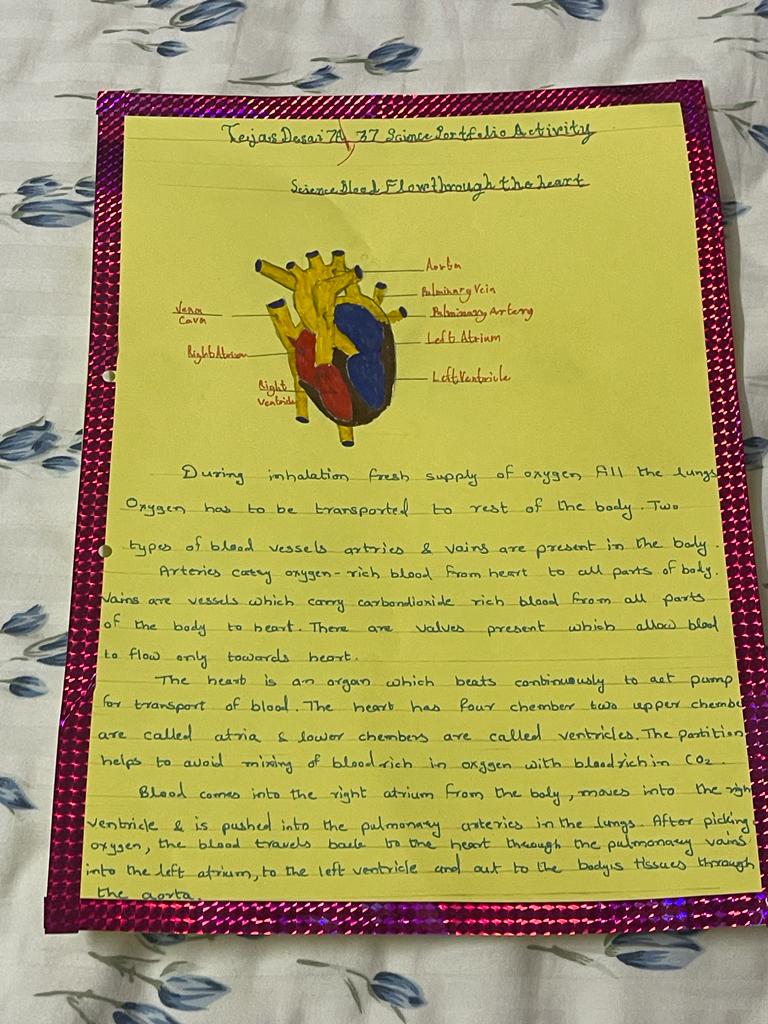 Tejas Desai 7A 37 Science Portfolio Activity
Science Blood Flow through the heart
Aorta
Pulminary Vein
Pulminary Artery
Left Atrium
Left Ventricle
Vena
Cava
Right Atrium
Right
Ventricle
During inhalation fresh supply of oxygen All the lungs
Oxygen has to be transported to rest of the body. Two
types of blood vessels artries & vains are present in the body.
Arteries carry oxygen-rich blood from heart to all parts of body.
Vains are vessels which carry carbondioxide rich blood from all parts
of the body to heart. There are valves present which allow blood
to flow only towards heart.
The heart is an organ which beats continuously to act pump
for transport of blood. The heart has four chamber two upper chambe
are called atria & lower chambers are called ventricles. The partition
helps to avoid mixing of blood rich in oxygen with blood rich in CO2.
Blood comes into the right atrium from the body, moves into the righ
ventricle & is pushed into the pulmonary arteries in the lungs. After picking
oxygen, the blood travels back to the heart through the pulmonary vains
into the left atrium, to the left ventricle and out to the body's tissues through
the aorta.